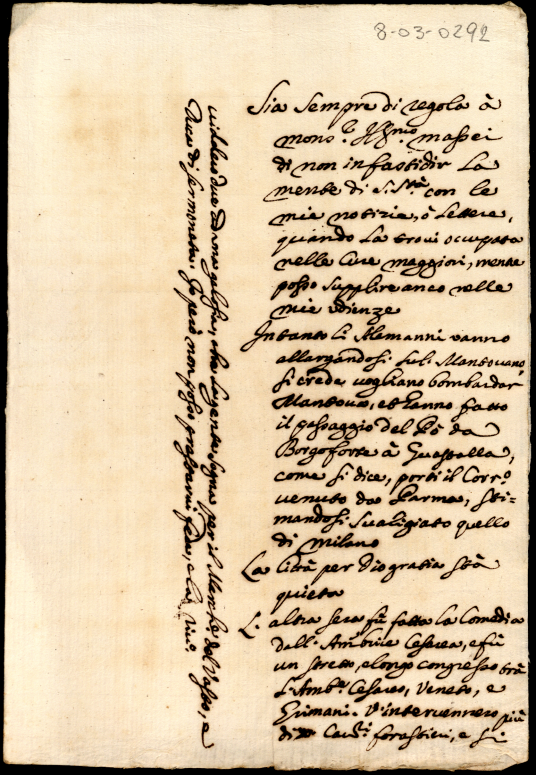 8-03-0292
Sia sempre di regola à
mons.r Ill.mo massei
di non infastidir La
mente di S. S.tà con le
mie notizie, ò Lettere,
quando La trovi occupata
nelle Cure maggiori, mentre
posso supplire anco nelle
mie udienze
Intanto li Alemanni vanno
allargandosi sul Mantovano,
si crede vogliano bombardar
Mantova, et hanno fatto
il passaggio del Pò da
Borgoforte à Guastalla,
come si dice, porti il Corr.o
venuto da Parma, sti=
mandosi svaligiato quello
di Milano
La Città per Dio gratia stà
quieta
L'altra sera fù fatta la Comedia
dall' Amb.re Cesareo, e fù
un stretto, e longo congresso trà
l'Amb.re Cesareo, Veneto, e
Grimani. V'intervennero più
di Cav.ri forastieri, e si
che la gente sogna per il March.e del Vasto, e
Duca di Sermoneta. Io però non posso prestarvi fede, e la